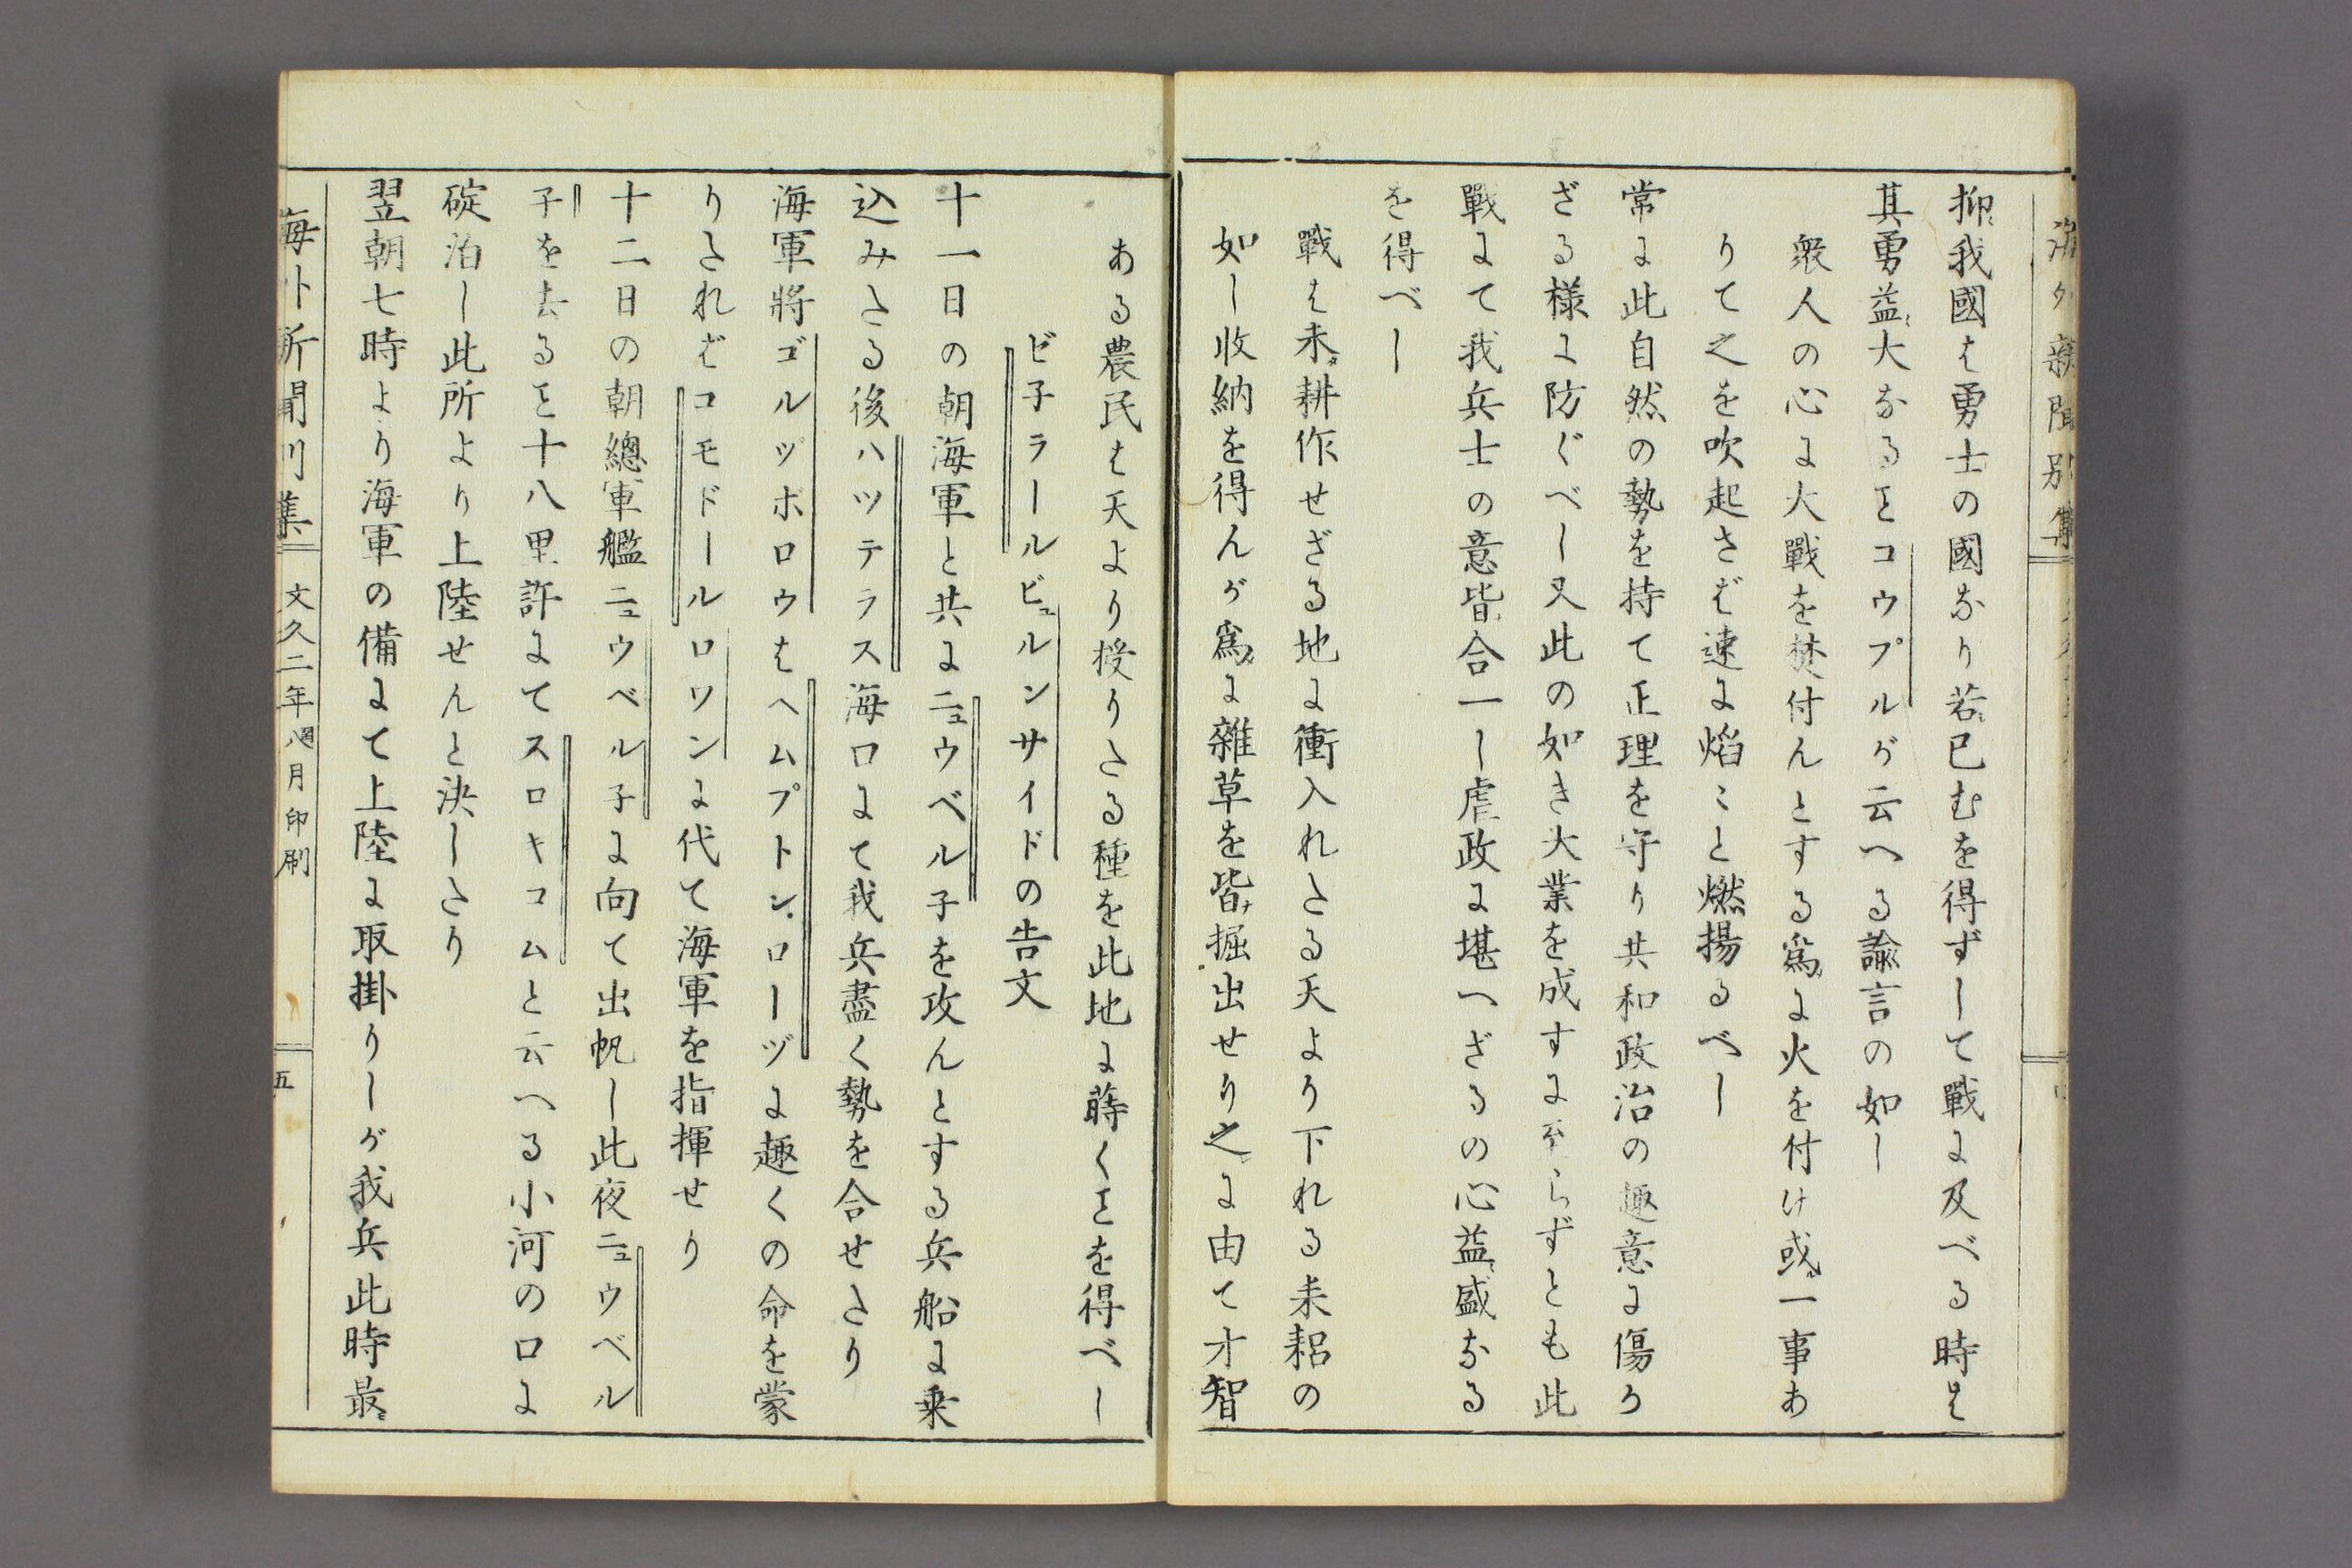 海外新聞別集
抑我國は勇士の國なり若已むを得ずして戰に及べる時は
其勇益大なるとコウプルが云へる諭言の如し
衆人の心に大戰を焚付んとする爲に火を付け或一事あ
りて之を吹起さば速に焰〻と燃揚るべし
常に此自然の勢を持て正理を守り共和政治の趣意に傷ら
ざる様に防ぐべし又此の如き大業を成すに至らずとも此
戰にて我兵士の意皆合一し虐政に堪へざるの心益盛なる
を得べし
戰は未耕作せざる地に衝入れたる天より下れる耒耜の
如し收納を得んが爲に雜草を皆掘出せり之に由て才智
ある農民は天より授りたる種を此地に蒔くとを得べし
ビ子ラールビュルンサイドの告文
十一日の朝海軍と共にニュウベル子を攻んとする兵船に乗
込みたる後ハツテラス海口にて我兵盡く勢を合せたり
海軍將ゴルツボロウはヘムプトン、ローヅに趣くの命を蒙
りたればコモドールロワンに代て海軍を指揮せり
十二日の朝總軍艦ニュウベル子に向て出帆し此夜ニュウベル
子を去ると十八里許にてスロキコムと云へる小河の口に
碇泊し此所より上陸せんと決したり
翌朝七時より海軍の備にて上陸に取掛りしが我兵此時最
海外新聞別集
文久二年閏八月印刷
五